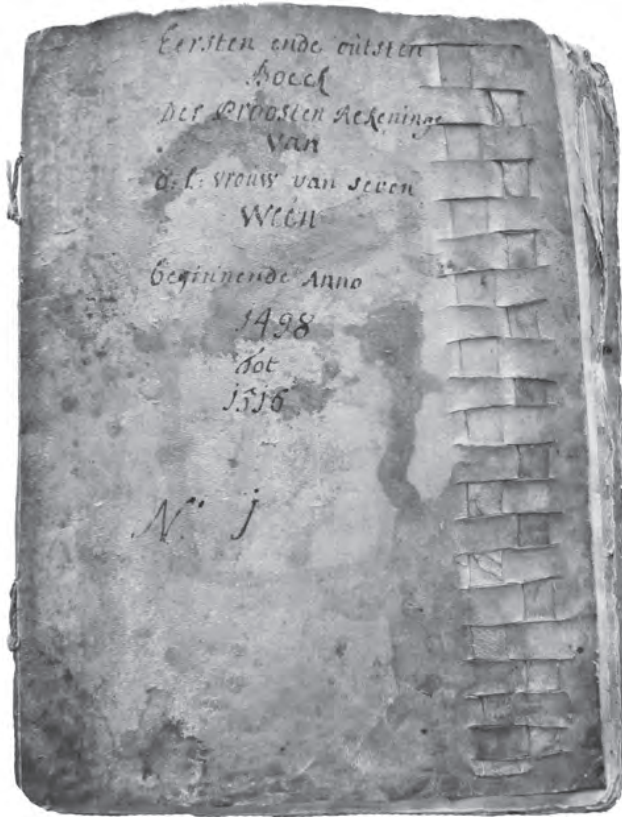 Eersten ende oûtsten
Boeck
Der Proosten Rekeninge
Van
O: L: vrouw van seven
Weén
beginnende Anno
1498
Tot
1516
N.º 1